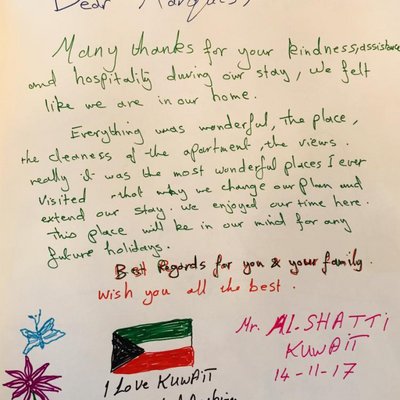 Dear Marques,
Many thanks for your kindness, assistance
and hospitality during our stay, we felt
like we are in our home.
Everything was wonderful, the place,
the cleaness of the apartment, the views.
really it was the most wonderful places I ever
visited that why we change our plan and
extend our stay. we enjoyed our time here.
this place will be in our mind for any
future holidays.
Best regards for you & your family.
wish you all the best.
Mr. AL-SHATTI
KUWAIT
14-11-17
I Love KUWAIT